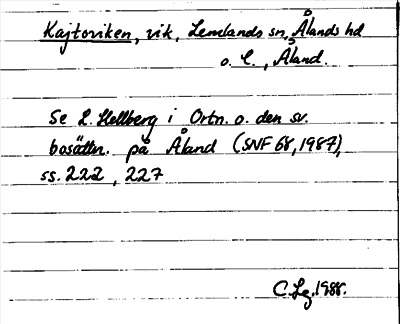 Kajtorviken, vik, Lemlands sn, Ålands hd
o. l., Åland.
Se L. Hellberg i Ortn. o. den sv.
bosättn. på Åland (SNF 68, 1987),
ss. 222, 227
C. Lg. 1988.